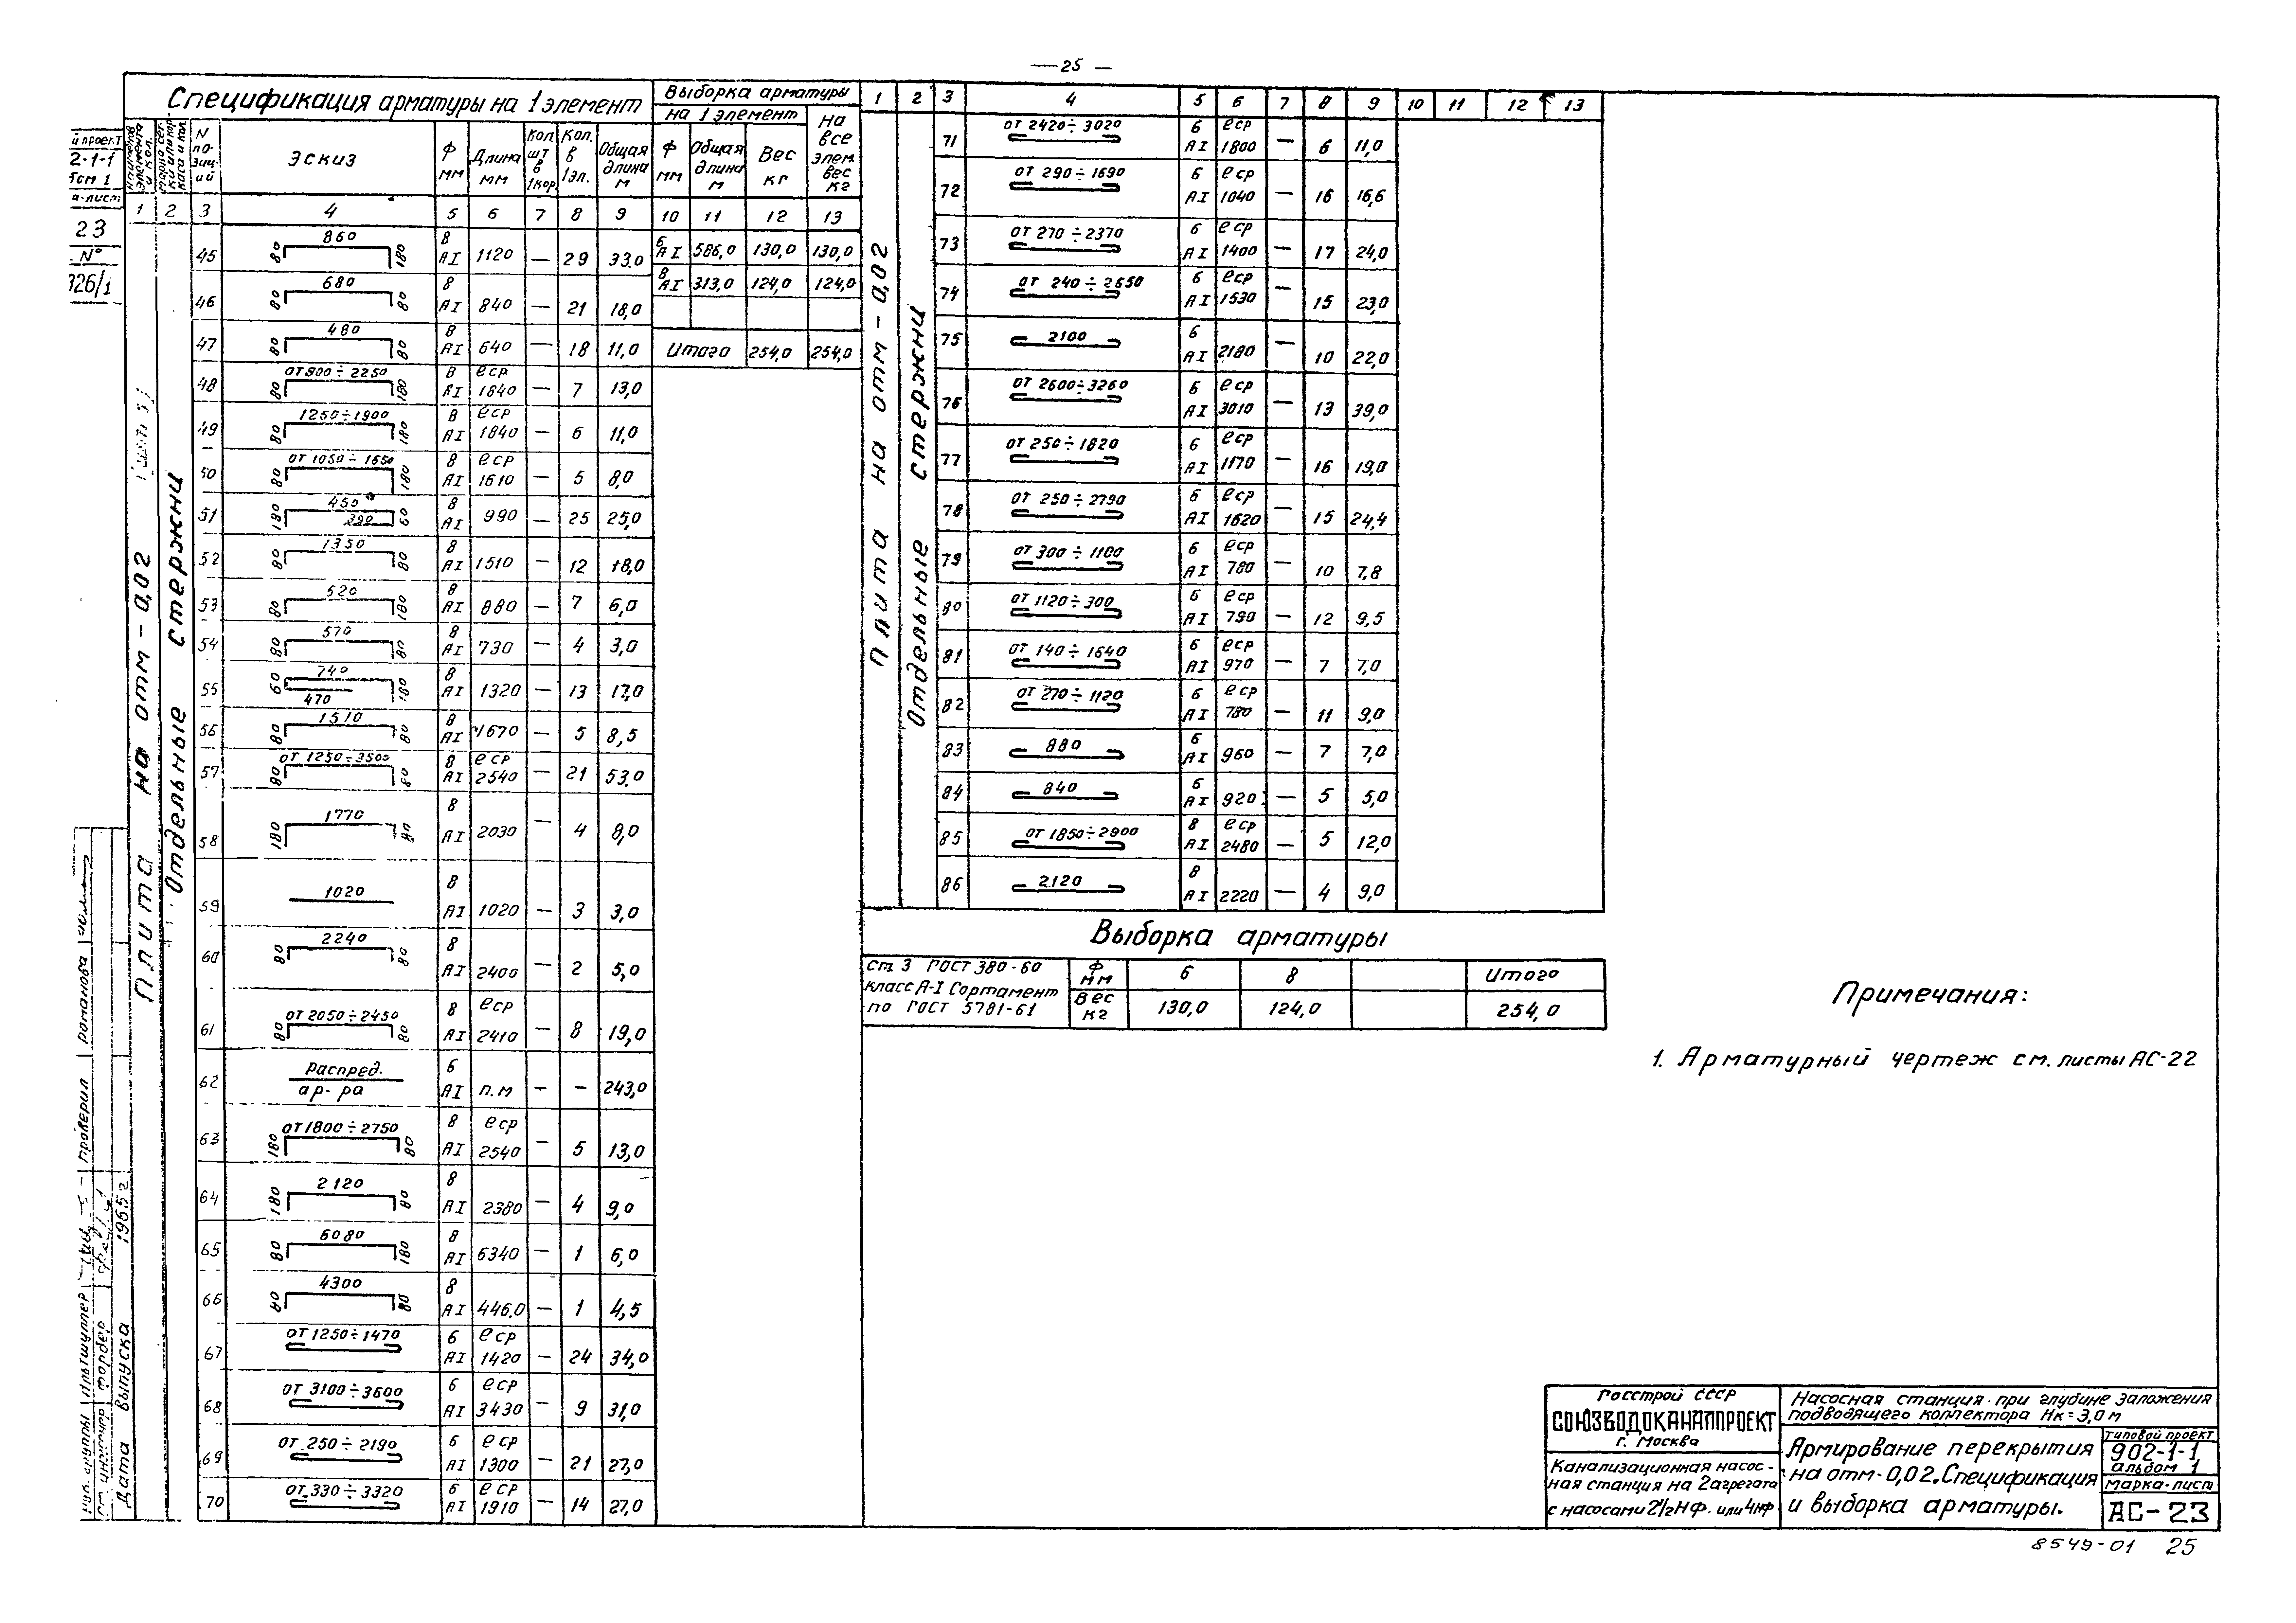 — 25 —
Спецификация арматуры на 1 элемент
Выборка арматуры
на 1 элемент
На все элем. вес кг
N позиций
эскиз
ф мм
Длина мм
Кол. шт в 1 кор.
Кол. в 1 эл.
Общая длина м
ф мм
Общая длина м
Вес кг
1 2 3 4 5 6 7 8 9 10 11 12 13
Плита на отм - 0,02
Отдельные стержни
45 80 860 180 8 АI 1120 — 29 33,0
46 80 680 80 8 АI 840 — 21 18,0
47 80 480 80 8 АI 640 — 18 11,0
48 80 от 900 ÷ 2250 180 8 АI ℓср 1840 — 7 13,0
49 80 1250÷1900 180 8 АI ℓср 1840 — 6 11,0
50 80 от 1050 ÷ 1650 180 8 АI ℓср 1610 — 5 8,0
51 180 450 390 60 8 АI 990 — 25 25,0
52 80 1350 80 8 АI 1510 — 12 18,0
53 80 620 180 8 АI 880 — 7 6,0
54 80 570 80 8 АI 730 — 4 3,0
55 60 740 470 180 8 АI 1320 — 13 17,0
56 80 1510 80 8 АI 1670 — 5 8,5
57 80 от 1250 ÷ 3500 80 8 АI ℓср 2540 — 21 53,0
58 180 1770 80 8 АI 2030 — 4 8,0
59 1020 8 АI 1020 — 3 3,0
60 80 2240 80 8 АI 2400 — 2 5,0
61 80 от 2050 ÷ 2450 80 8 АI ℓср 2410 — 8 19,0
62 Распред. ар-ра 6 АI п.м — — 243,0
63 180 от 1800 ÷ 2750 80 8 АI ℓср 2540 — 5 13,0
64 180 2120 80 8 АI 2380 — 4 9,0
65 80 6080 180 8 АI 6340 — 1 6,0
66 80 4300 80 8 АI 446,0 — 1 4,5
67 от 1250÷1470 6 АI ℓср 1420 — 24 34,0
68 от 3100÷3600 6 АI ℓср 3430 — 9 31,0
69 от 250 ÷ 2190 6 АI ℓср 1300 — 21 27,0
70 от 330 ÷ 3320 6 АI ℓср 1910 — 14 27,0
6 АI 586,0 130,0 130,0
8 АI 313,0 124,0 124,0
Итого 254,0 254,0
1 2 3 4 5 6 7 8 9 10 11 12 13
Плита на отм - 0,02
Отдельные стержни
71 от 2420 ÷ 3020 6 АI ℓср 1800 — 6 11,0
72 от 290 ÷ 1690 6 АI ℓср 1040 — 16 16,6
73 от 270 ÷ 2370 6 АI ℓср 1400 — 17 24,0
74 от 240 ÷ 2650 6 АI ℓср 1530 — 15 23,0
75 2100 6 АI 2180 — 10 22,0
76 от 2600÷3260 6 АI ℓср 3010 — 13 39,0
77 от 250 ÷ 1820 6 АI ℓср 1170 — 16 19,0
78 от 250 ÷ 2790 6 АI ℓср 1620 — 15 24,4
79 от 300 ÷ 1100 6 АI ℓср 780 — 10 7,8
80 от 1120 ÷ 300 6 АI ℓср 790 — 12 9,5
81 от 140 ÷ 1640 6 АI ℓср 970 — 7 7,0
82 от 270 ÷ 1120 6 АI ℓср 780 — 11 9,0
83 880 6 АI 960 — 7 7,0
84 840 6 АI 920 — 5 5,0
85 от 1850÷2900 8 АI ℓср 2480 — 5 12,0
86 2120 8 АI 2220 — 4 9,0
Выборка арматуры
Ст 3 ГОСТ 380-60
класс А-I Сортамент
по ГОСТ 5781-61
ф мм 6 8 Итого
Вес кг 130,0 124,0 254,0
Примечания:
1. Арматурный чертеж см. листы АС-22
Госстрой СССР
СОЮЗВОДОКАНАЛПРОЕКТ
г. Москва
Канализационная насос-
ная станция на 2 агрегата
с насосами 2½НФ. или 4НФ
Насосная станция при глубине заложения
подводящего коллектора Нк=3,0м
Армирование перекрытия
на отм-0,02. Спецификация
и выборка арматуры.
типовой проект
902-1-1
альбом 1
марка-лист
АС-23
8549-01 25
й проект
2-1-1
а-лист
23
N°
326/1
проверил Романова
Дата выпуска 1965 г